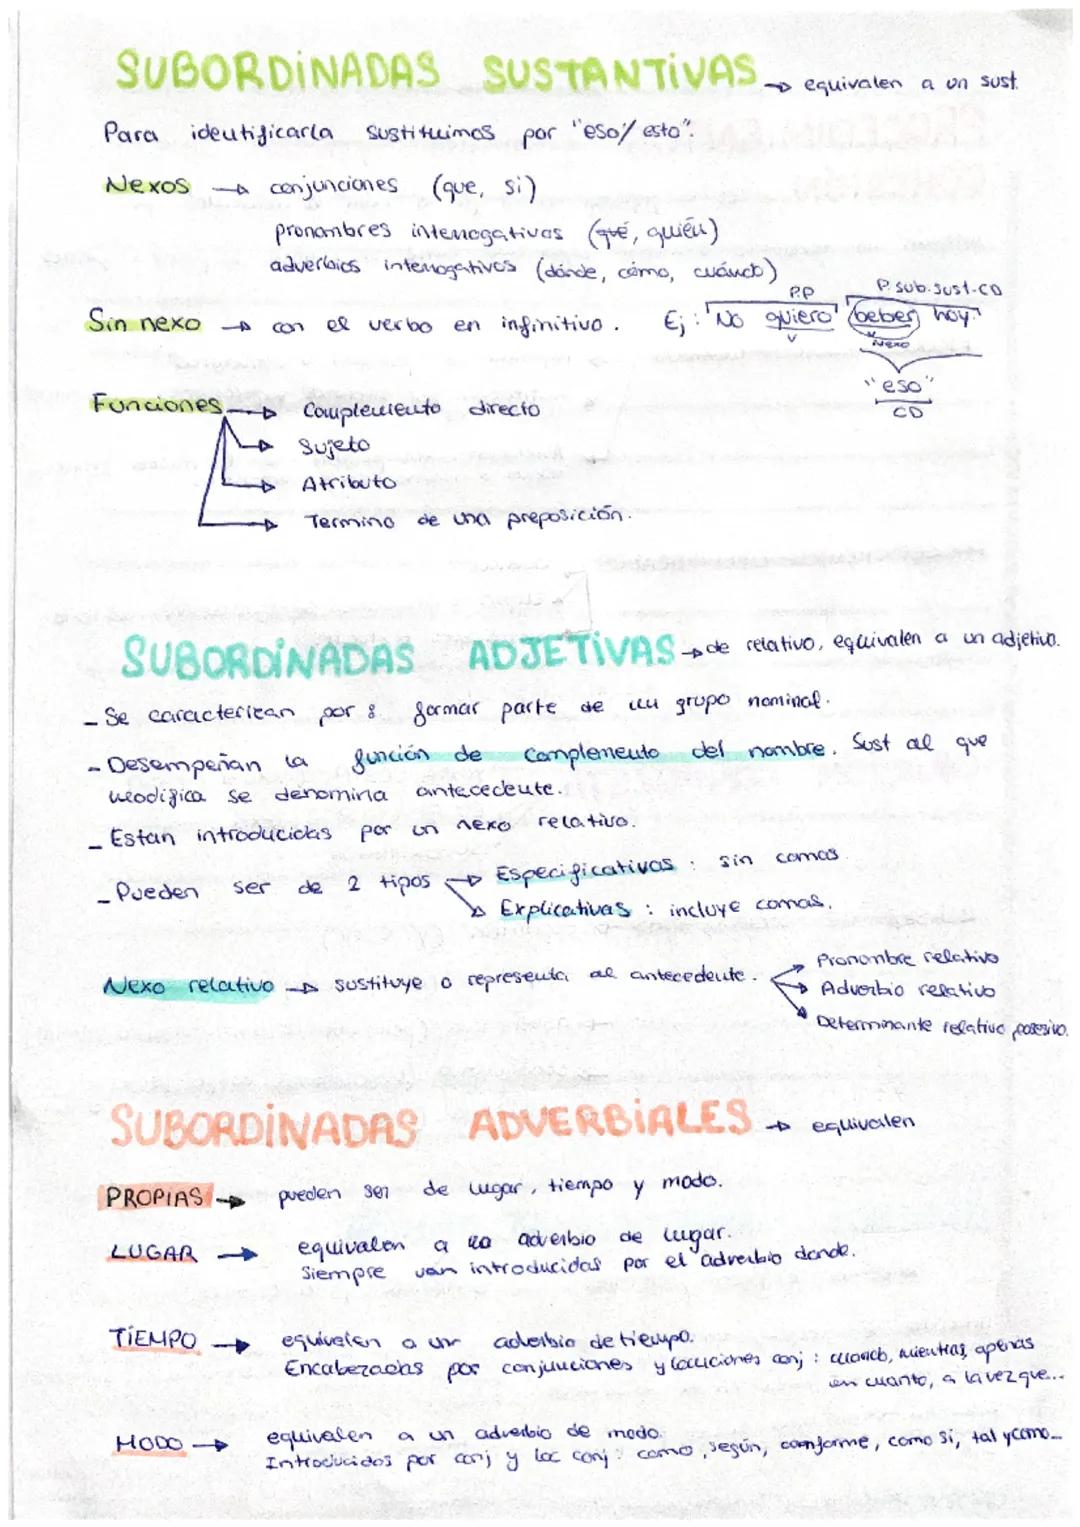 SUBORDINADAS SUSTANTIVAS → equivalen a un sust.
Para identificarla sustituimos por "eso/esto".
Nexos → conjunciones (que, si)
pronombres interrogativos (qué, quién)
adverbios interrogativos (dónde, cómo, cuándo)
P.P P. sub. sust-CD
Sin nexo → con el verbo en infinitivo. Ej: "No quiero beber hoy"
V V
Nexo
"eso"
CD
Funciones → Complemento directo
→ Sujeto
→ Atributo
→ Termino de una preposición.
SUBORDINADAS ADJETIVAS → de relativo, equivalen a un adjetivo.
- Se caracterizan por: formar parte de un grupo nominal.
- Desempeñan la función de complemento del nombre. Sust al que
modifica se denomina antecedente.
- Estan introducidas por un nexo relativo.
- Pueden ser de 2 tipos → Especificativas: sin comas
→ Explicativas: incluye comas.
Nexo relativo → sustituye o representa al antecedente. → Pronombre relativo
→ Adverbio relativo
→ Determinante relativo posesivo.
SUBORDINADAS ADVERBIALES → equivalen
PROPIAS → pueden ser de lugar, tiempo y modo.
LUGAR → equivalen a adverbio de lugar.
Siempre van introducidas por el adverbio donde.
TIEMPO → equivalen a un adverbio de tiempo.
Encabezadas por conjunciones y locuciones conj: cuando, mientras, apenas
en cuanto, a la vez que...
MODO → equivalen a un adverbio de modo.
Introducidos por conj y loc conj: como, según, conforme, como si, tal y como...